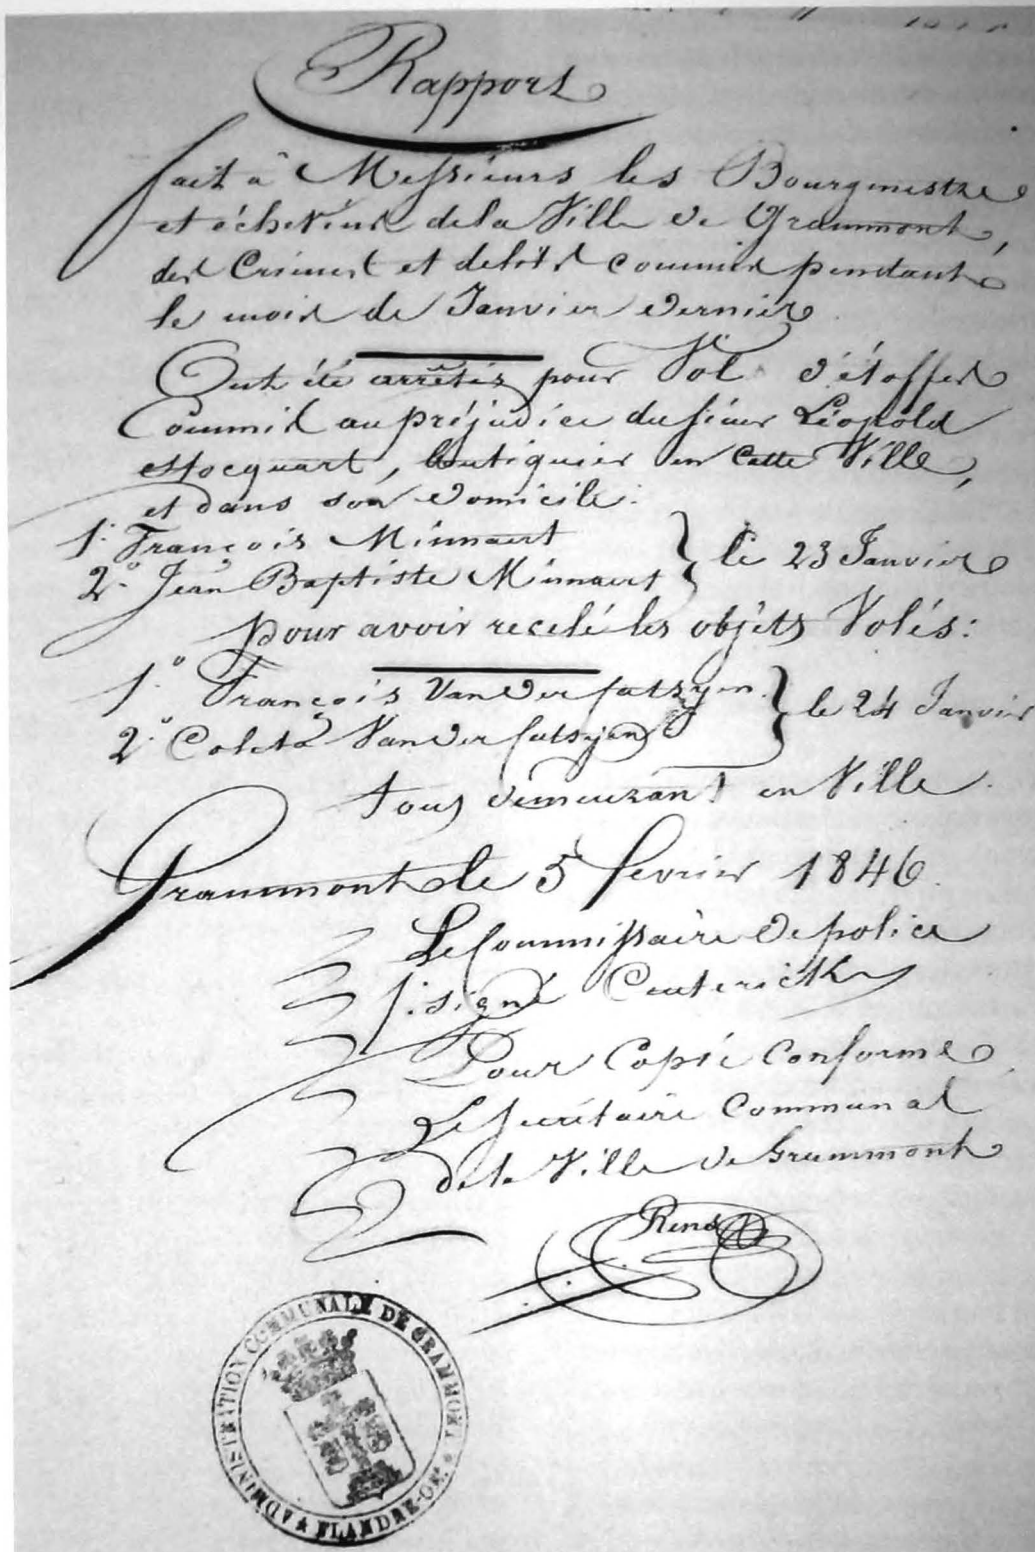 Rapport
fait à Messieurs les Bourgmestre
et échevins de la Ville de Grammont,
des Crimes et delits commis pendant
le mois de Janvier dernier
Ont été arrêtés pour Vol d'étoffes
Commis au préjudice du sieur Léopold
Stocquart, boutiquier en cette Ville,
et dans son domicile:
1.° François Minnaert
2.° Jean Baptiste Minnaert } le 23 Janvier
pour avoir recelé les objets Volés:
1.° François Vander
2.° Coleta Vander } le 24 Janvier
tous demeurant en Ville.
Grammont le 5 fevrier 1846.
Le Commissaire de police
signé Ceuterick
Pour Copie Conforme
Le secrétaire Communal
de la Ville de Grammont
Rens
ADMINISTRATION COMMUNALE DE GRAMMONT * FLANDRE-OR.^LE *